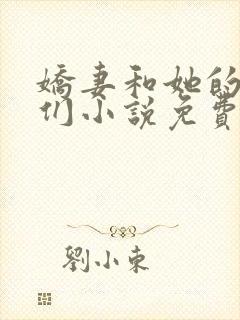 嬌妻和她的
们小說免費
劉小東